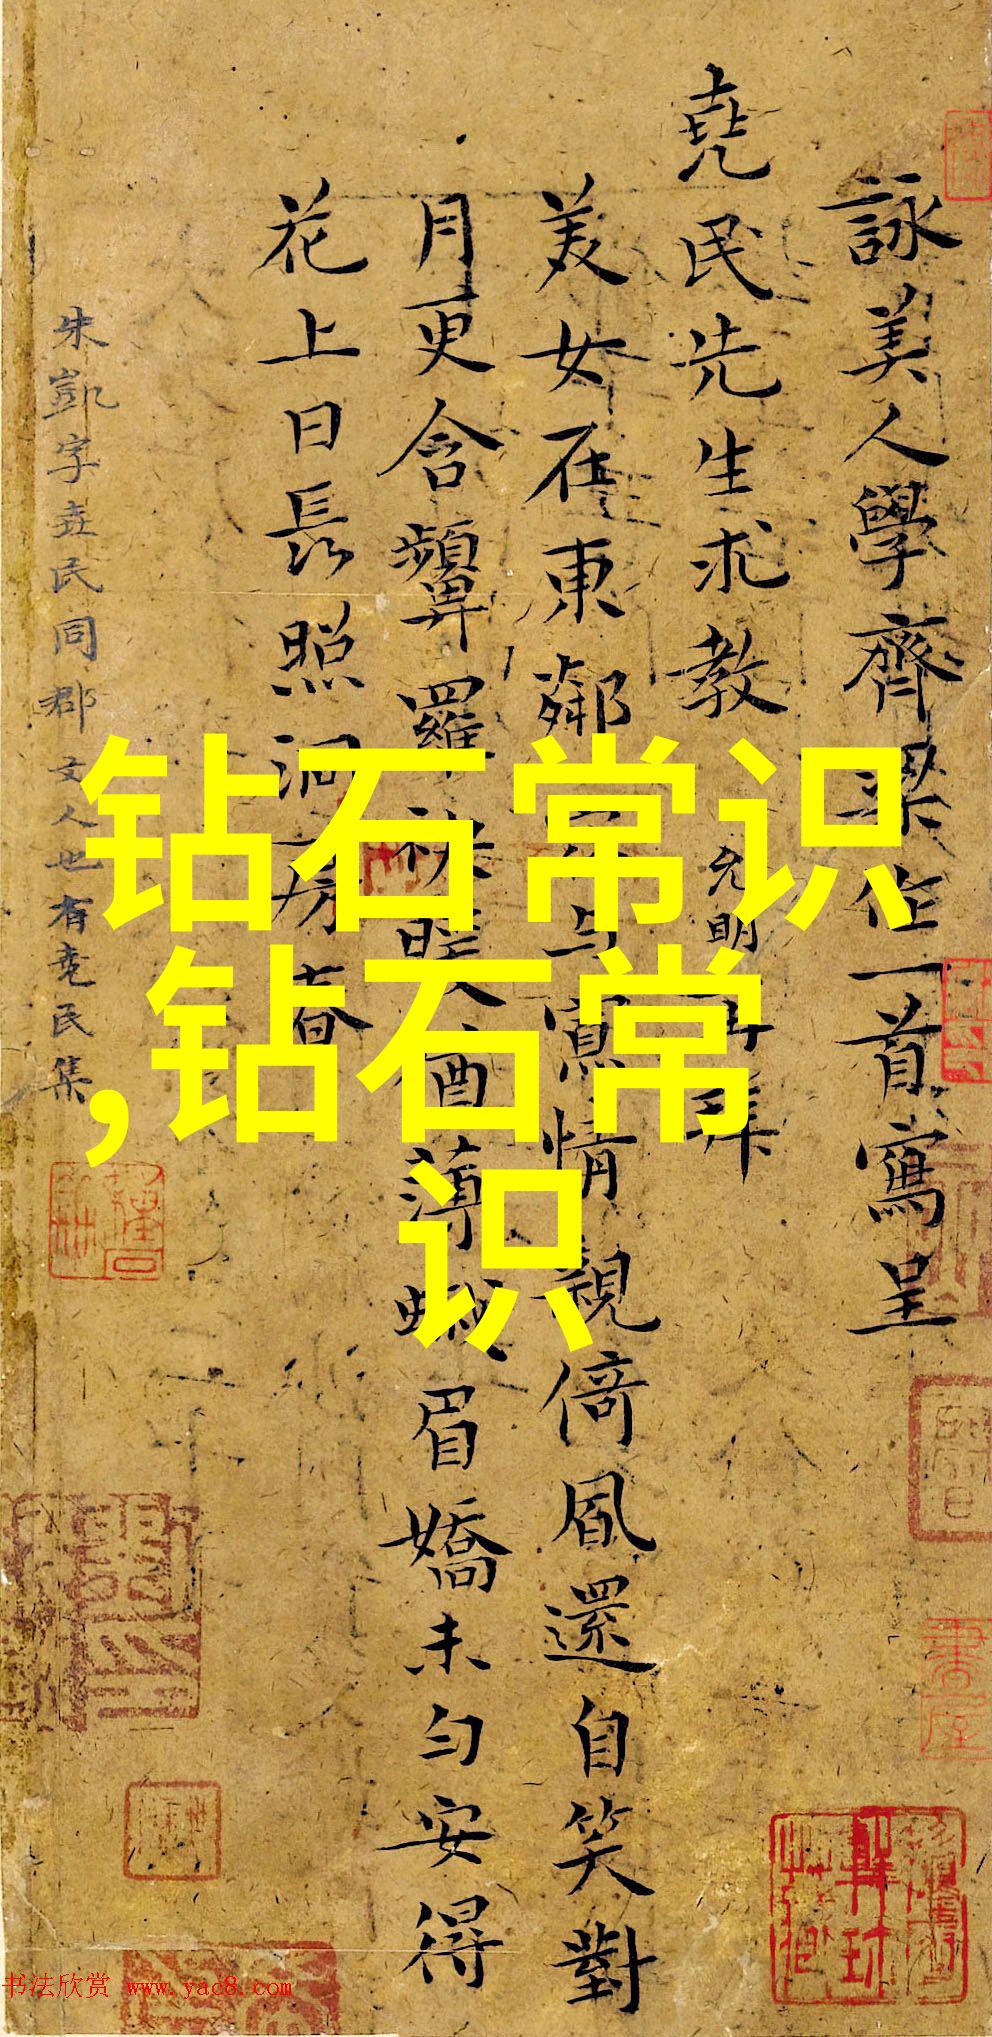 詠美人學齊梁作一首寫呈
堯民先生求教
允明再拜
美女在東鄰 与 情親倚風還自笑對
月更含顰羅袂 酒薄蛾眉嬌未勻安得
花上日長照洞房春
朱凱字堯民同郡文人也有堯民集
钻石常识
,钻石常
识
书法欣赏 www.yac8.com